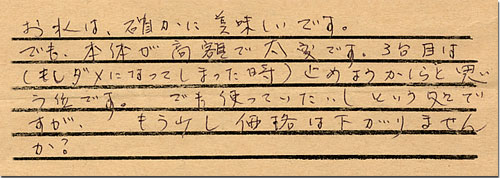 お水は、確かに美味しいです。
でも、本体が高額で大変です。3台目は
(もしダメになってしまった時)止めようかしらと思
う位です。 でも使っていたいしという処で
すが、 もう少し価格は下がりません
か?